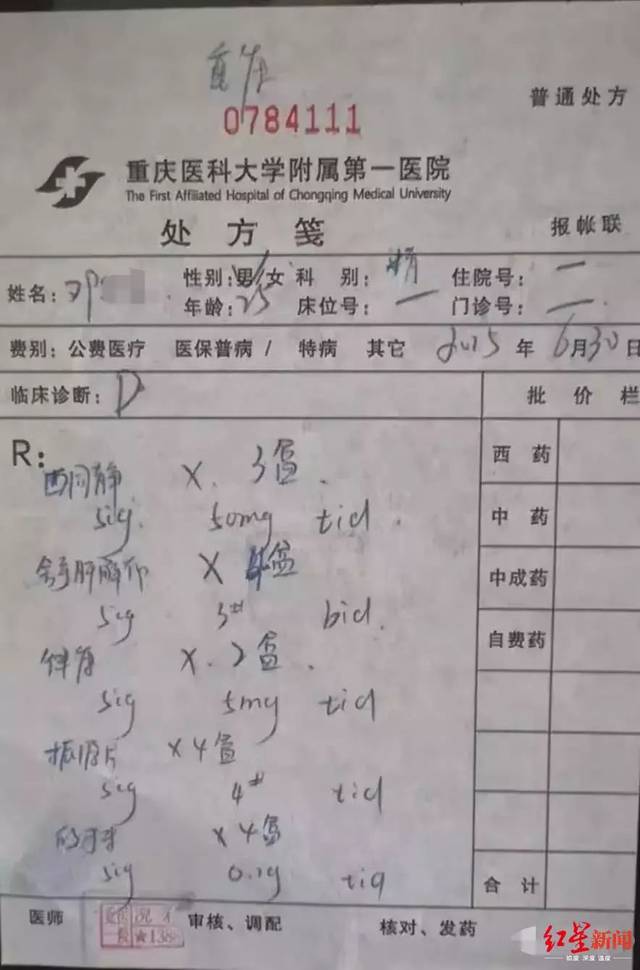 0784111
普通处方
重庆医科大学附属第一医院
The First Affiliated Hospital of Chongqing Medical University
处方笺
报帐联
姓名：邓 性别：男/女 科别： 住院号：一
年龄：25 床位号：一 门诊号：一
费别：公费医疗 医保普病 / 特病 其它 2015 年 6月30日
临床诊断：D 批价栏
R：
西同静 X. 3盒.
sig. 50mg tid.
舒肝解郁 X 4盒
sig 3# bid.
X. 2盒.
sig 5mg tid
振源片 X4盒
sig 4# tid
X4盒
sig 0.1g tid
西药
中药
中成药
自费药
合计
医师 审核、调配 核对、发药
红星新闻